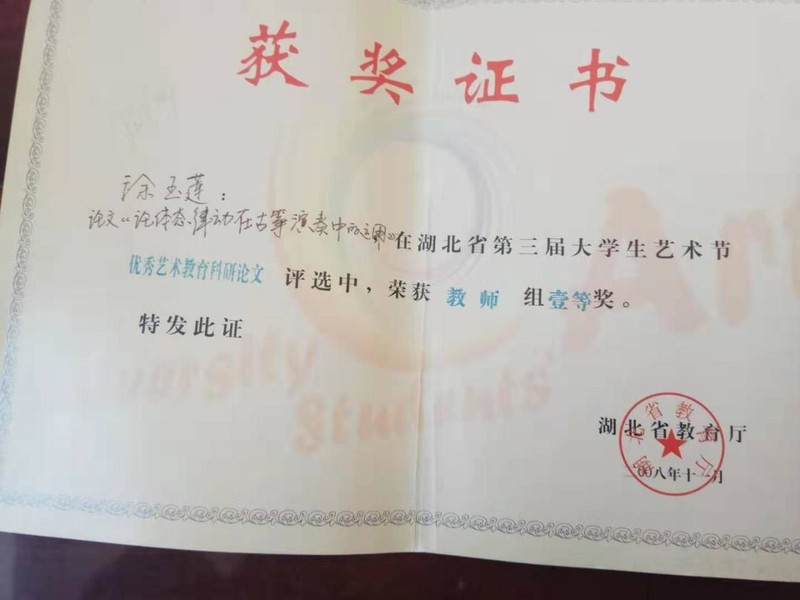 获奖证书
涂玉莲：
论文《论体态律动在古筝演奏中的运用》在湖北省第三届大学生艺术节
优秀艺术教育科研论文 评选中，荣获 教师 组壹等奖。
特发此证
湖北省教育厅
二〇〇八年十一月
湖北省教育厅
Art
University
Students'